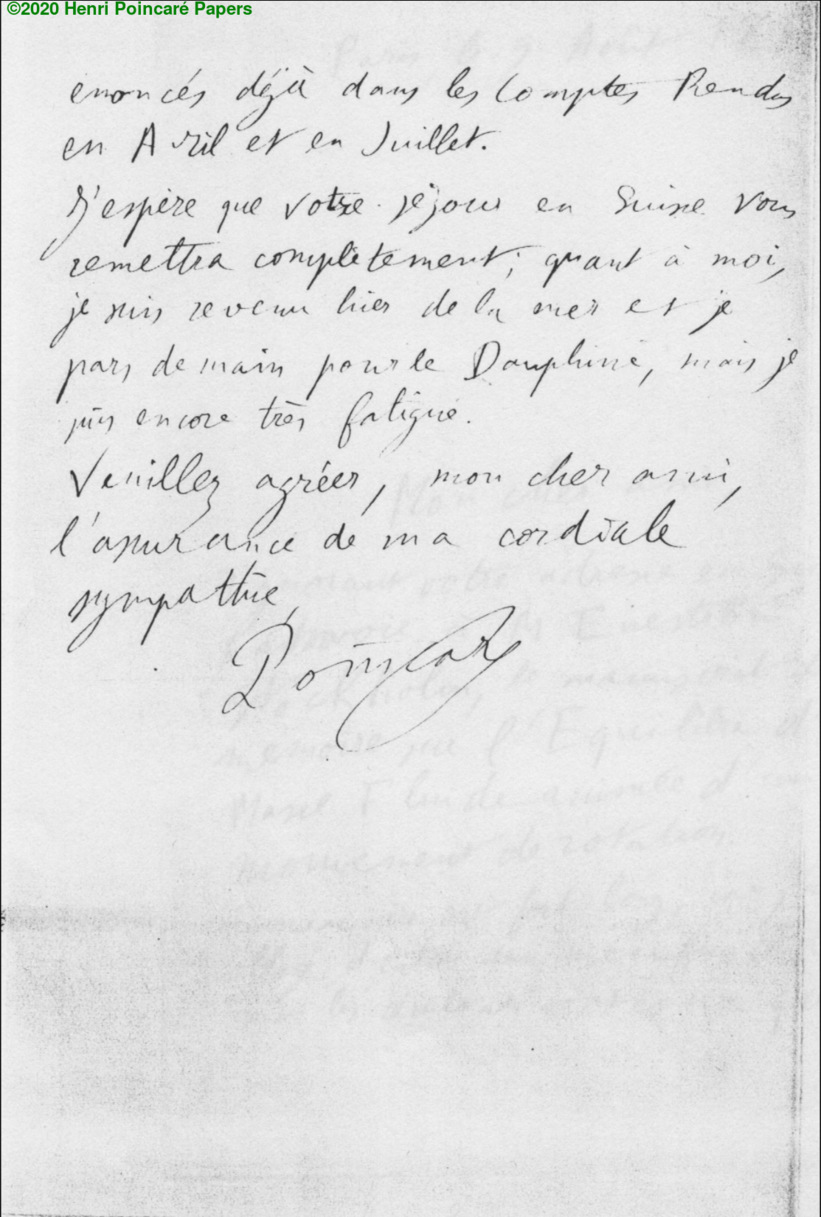 ©2020 Henri Poincaré Papers
enoncés déjà dans les Comptes Rendus
en Avril et en Juillet.
J'espère que votre séjour en Suisse vous
remettra complètement; quant à moi,
je suis revenu hier de la mer et je
pars demain pour le Dauphiné, mais je
suis encore très fatigué.
Veuillez agréer, mon cher ami,
l'assurance de ma cordiale
sympathie,
Poincaré